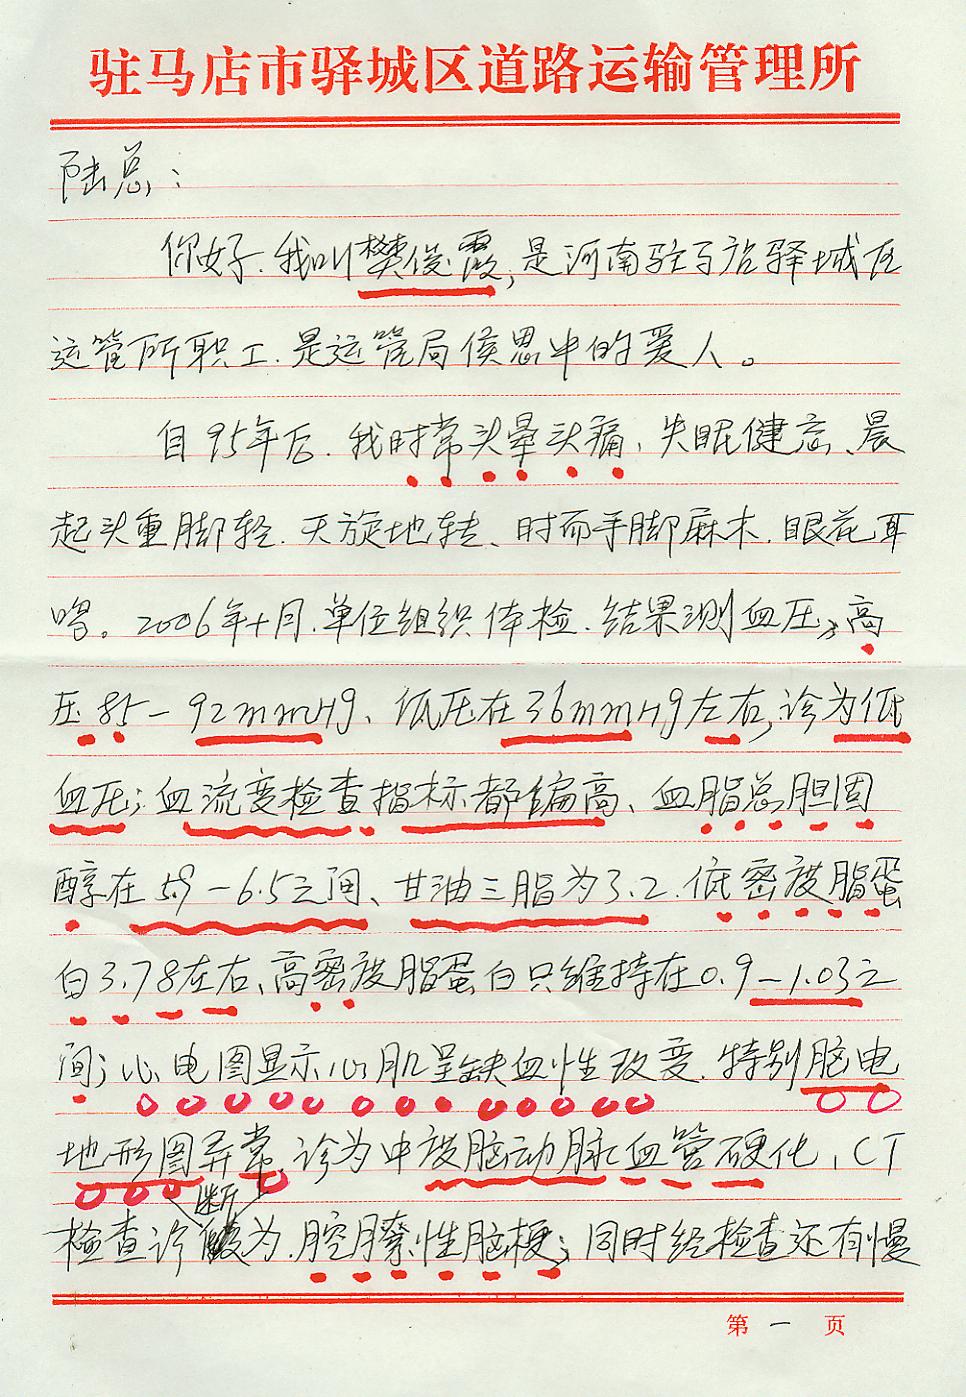 驻马店市驿城区道路运输管理所
陆总:
你好.我叫樊俊霞,是河南驻马店驿城区
运管所职工.是运管局侯思中的爱人。
自95年后.我时常头晕头痛、失眠健忘、晨
起头重脚轻.天旋地转、时而手脚麻木.眼花耳
鸣。2006年十月.单位组织体检.结果测血压,高
压85-92mmHg、低压在36mmHg左右,诊为低
血压;血流变检查指标都偏高、血脂总胆固
醇在5.9-6.5之间、甘油三脂为3.2.低密度脂蛋
白3.78左右、高密度脂蛋白只维持在0.9-1.03之
间;心电图显示心肌呈缺血性改变.特别脑电
地形图异常.诊为中度脑动脉血管硬化,CT
检查诊断为.腔隙性脑梗;同时经检查还有慢
第 一 页